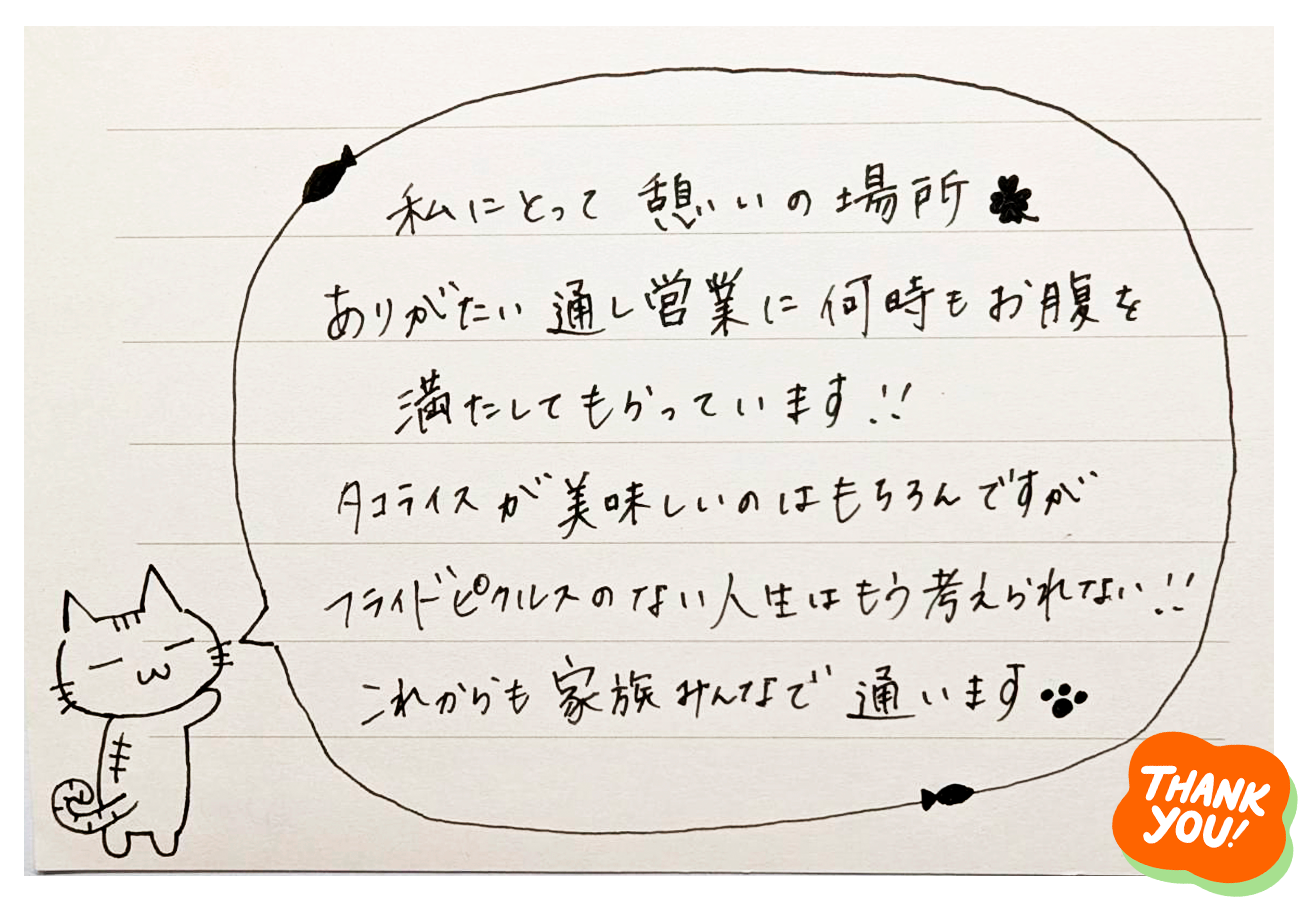 私にとって 憩いの場所
ありがたい通し営業に何時もお腹を
満たしてもらっています!!
タコライスが美味しいのはもちろんですが
フライドピクルスのない人生はもう考えられない!!
これからも家族みんなで通います
THANK
YOU!